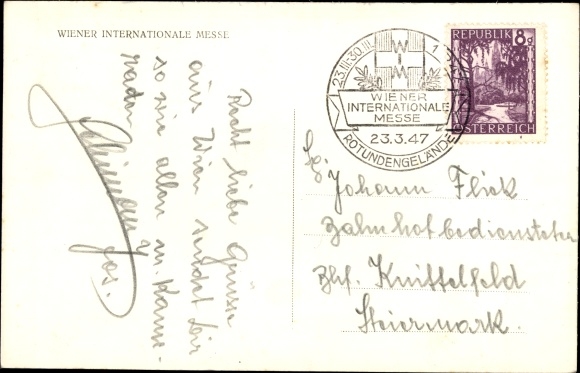 WIENER INTERNATIONALE MESSE
23.III.-30.III.
WIENER
INTERNATIONALE
MESSE
23.3.47
ROTUNDENGELÄNDE
REPUBLIK 8g
ÖSTERREICH
Recht liebe Grüsse
aus Wien sendet Dir
so wie allen m. Kame-
raden
Jos.
Johann Flick
Bahnhofbediensteter
Bhf. Knittelfeld
Steiermark.